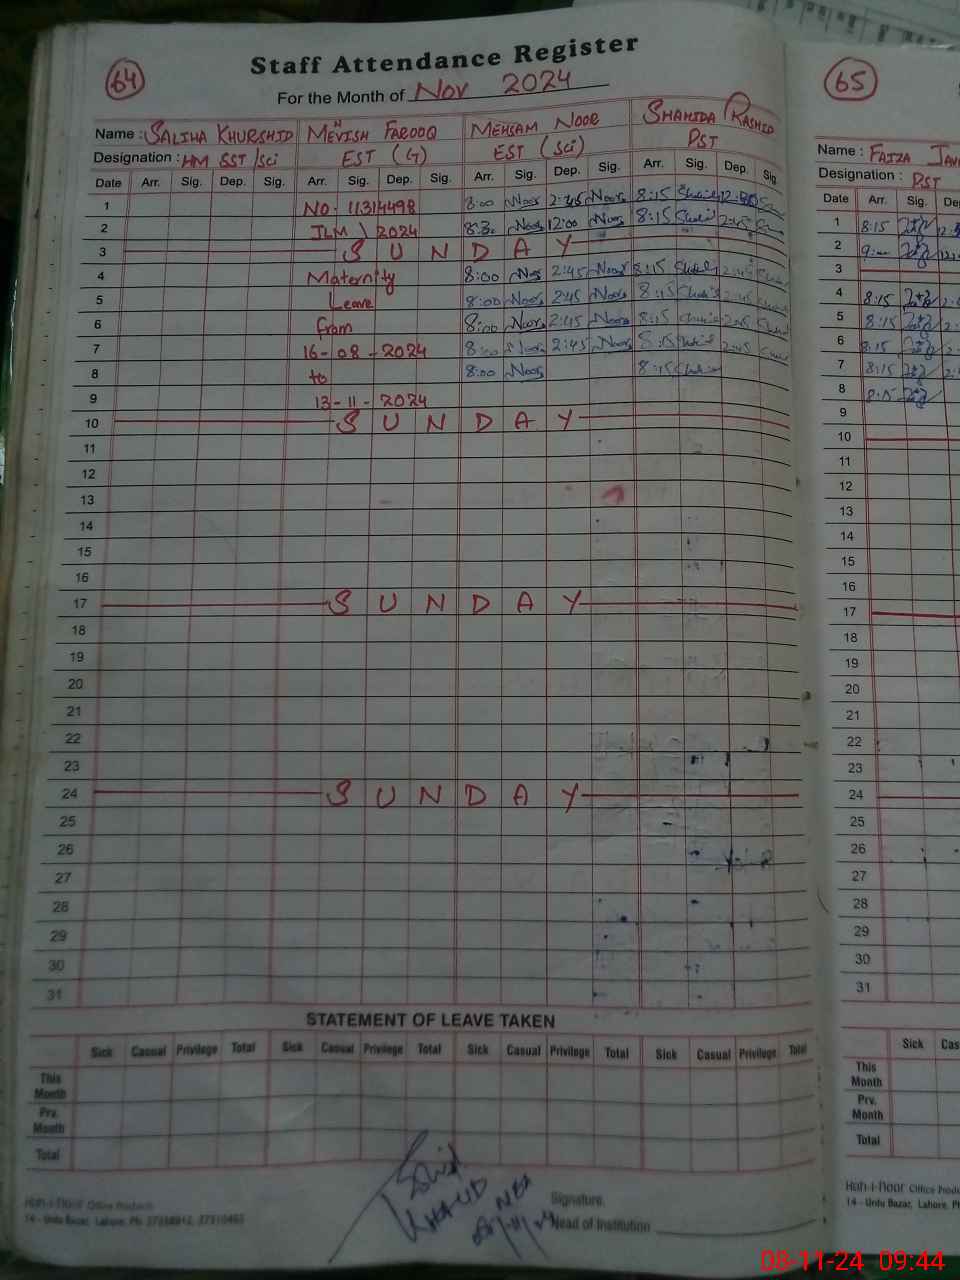 64
Staff Attendance Register
For the Month of Nov 2024
Name : SALIHA KHURSHID MEHVISH FAROOQ MEHSAM NOOR SHAHIDA RASHID
Designation : HM SST/Sci EST (G) EST (Sci) PST
Date Arr. Sig. Dep. Sig. Arr. Sig. Dep. Sig. Arr. Sig. Dep. Sig. Arr. Sig. Dep. Sig.
1 NO. 11314498 8:00 Noor 2:45 Noor 8:15
2 JLM \ 2024 Noor 12:00 Noor 8:15 2:45
3 SUNDAY
4 Maternity 8:00 Noor 2:45 Noor 8:15 2:45
5 Leave 8:00 Noor 2:45 Noor 8:15 2:45
6 from 8:00 Noor 2:45 Noor 8:15 2:45
7 16-08-2024 8:00 Noor 2:45 Noor 8:15 2:45
8 to 8:00 Noor 8:15
9 13-11-2024
10 SUNDAY
11
12
13
14
15
16
17 SUNDAY
18
19
20
21
22
23
24 SUNDAY
25
26
27
28
29
30
31
STATEMENT OF LEAVE TAKEN
Sick Casual Privilege Total Sick Casual Privilege Total Sick Casual Privilege Total Sick Casual Privilege Total
This Month
Prv. Month
Total
KHALID
Signature.
Head of Institution
Hoh-i-Noor Office Products
14 - Urdu Bazar, Lahore. Ph:
65
Name : FAIZA
Designation : PST
Date Arr. Sig.
1 8:15
2
3
4 8:15
5 8:15
6 8:15
7 8:15
8 8:15
9
10
11
12
13
14
15
16
17
18
19
20
21
22
23
24
25
26
27
28
29
30
31
Sick
This Month
Prv. Month
Total
Hoh-i-Noor Office
14 - Urdu Bazar, Lahore,
08-11-24 09:44